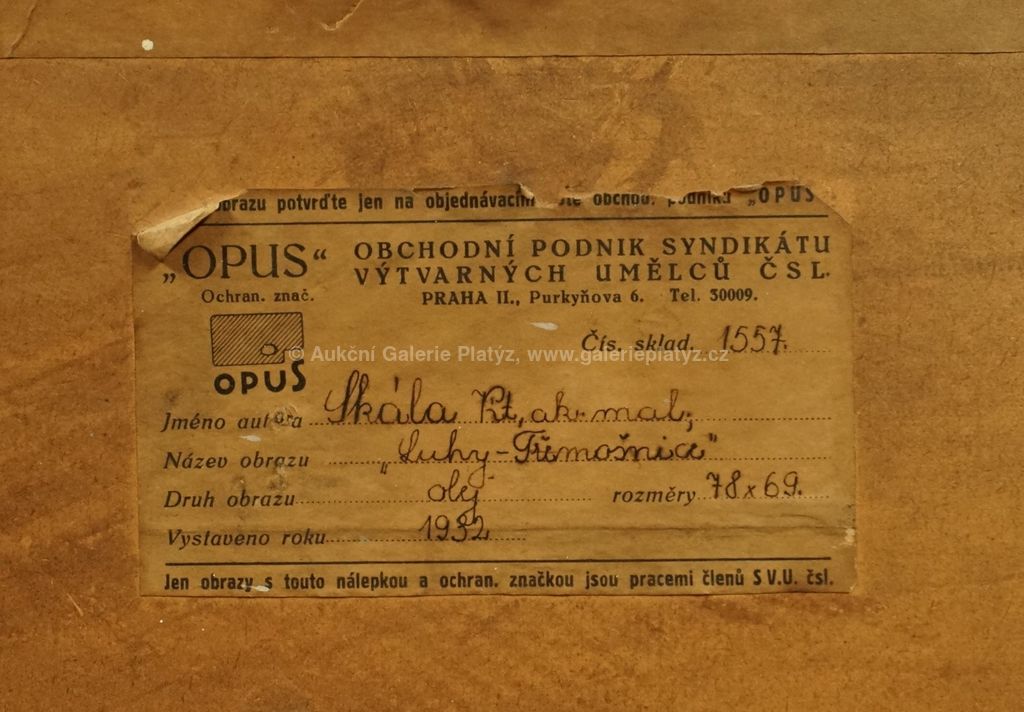 obrazu potvrďte jen na objednávacím obchod. podniku „OPUS
„OPUS“
Ochran. znač.
OBCHODNÍ PODNIK SYNDIKÁTU
VÝTVARNÝCH UMĚLCŮ ČSL.
PRAHA II., Purkyňova 6. Tel. 30009.
Čís. sklad. 1557.
© Aukční Galerie Platýz, www.galerieplatyz.cz
OPUS
Jméno autora Skála Kt, ak. mal.
Název obrazu „Luhy - Třemošnice“
Druh obrazu olej rozměry 78 x 69.
Vystaveno roku 1932
Jen obrazy s touto nálepkou a ochran. značkou jsou pracemi členů S V.U. čsl.